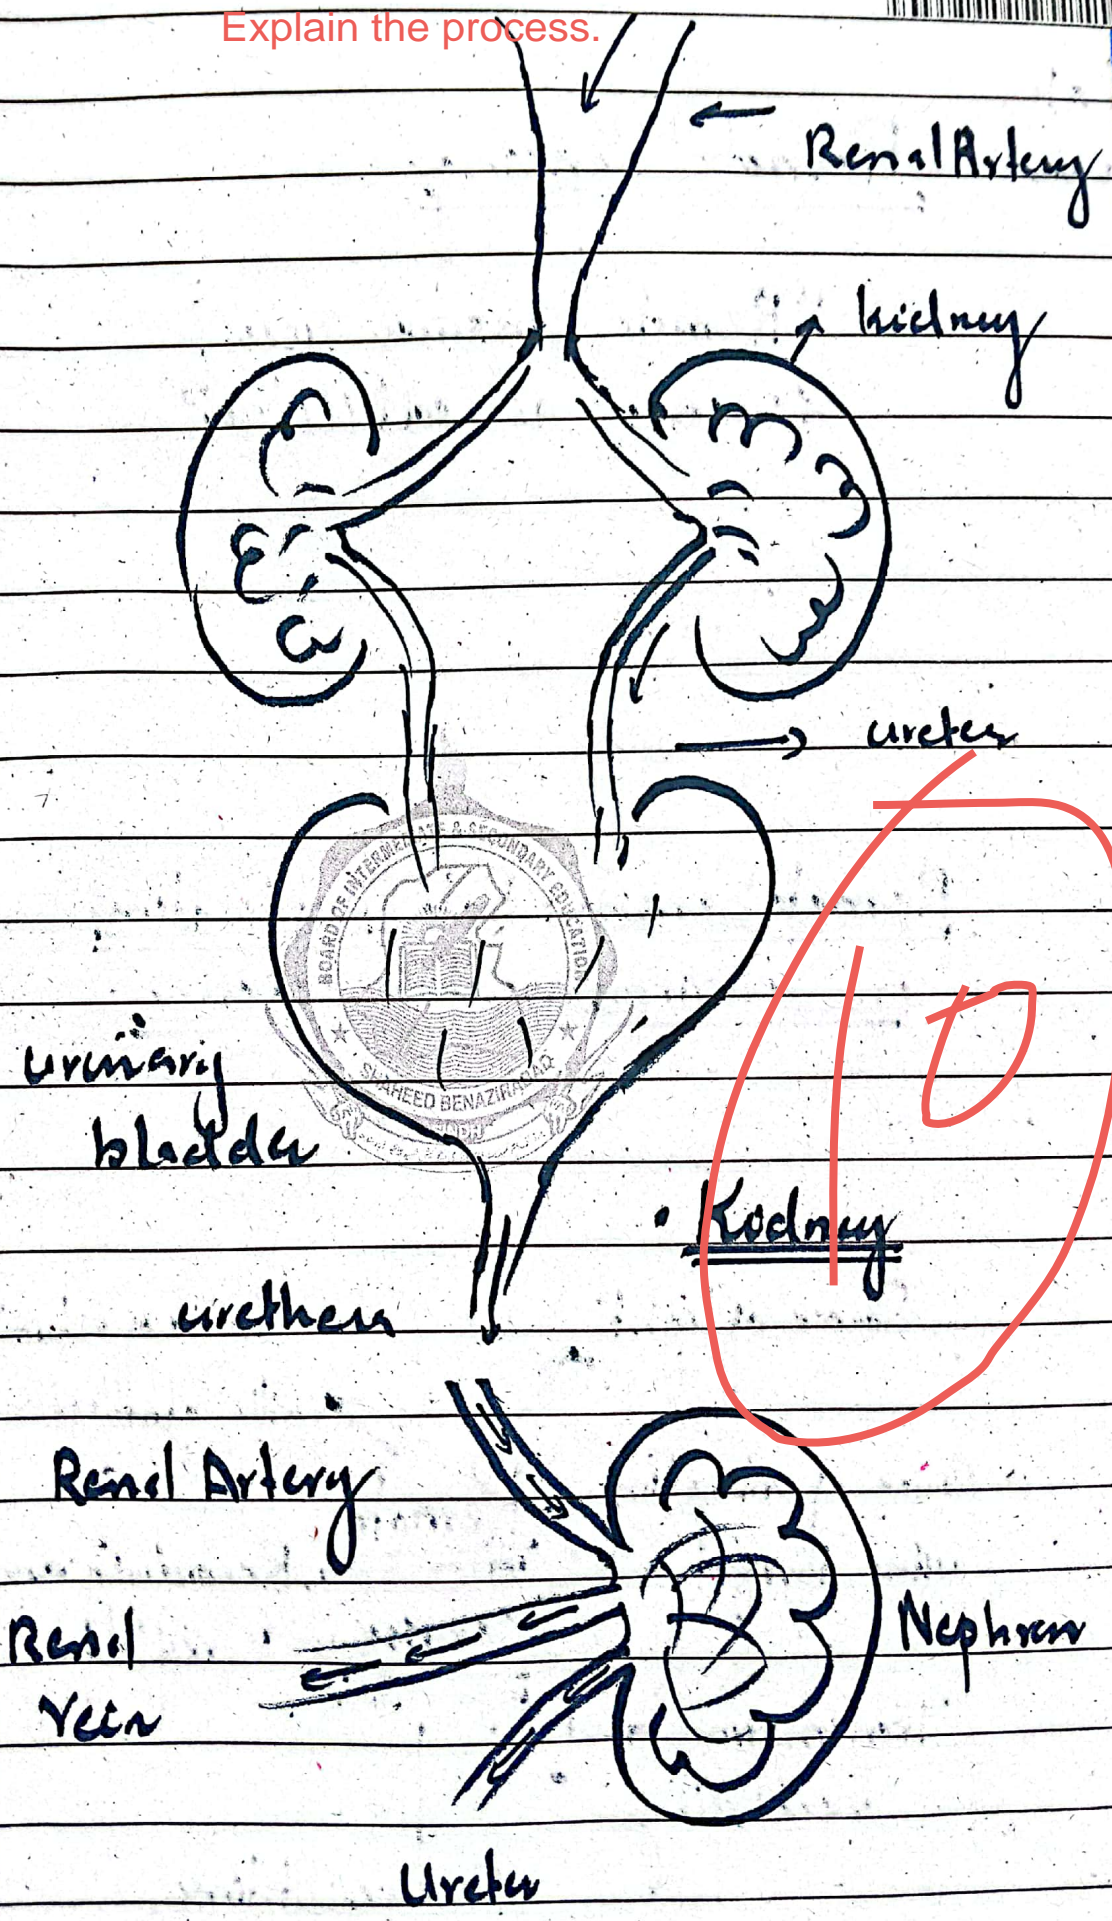 Explain the process.
Renal Artery
kidney
ureter
BOARD OF INTERMEDIATE & SECONDARY EDUCATION
SHAHEED BENAZIRABAD
SINDH
urinary
bladder
10
• Kidney
urethera
Renal Artery
Renal
Vein
Nephron
Ureter